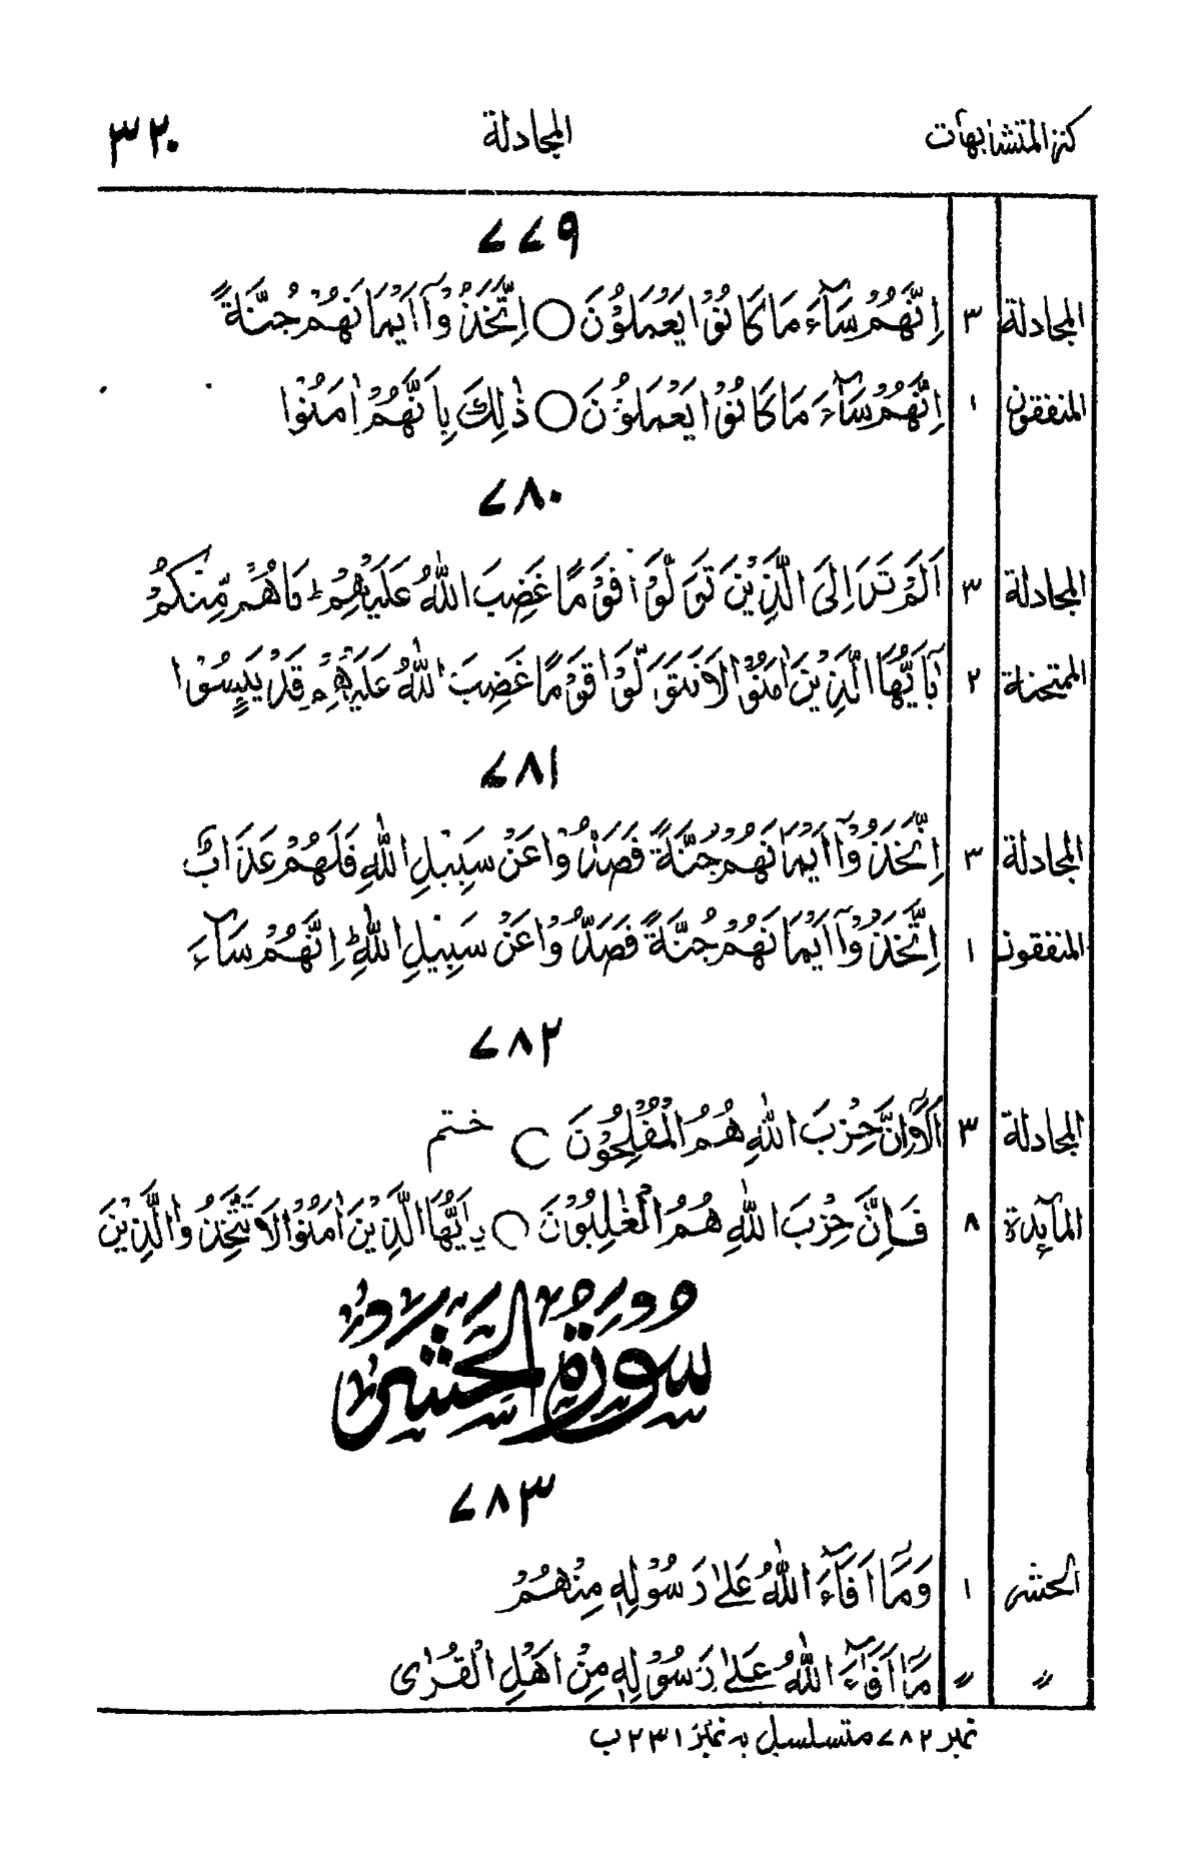 كنز المتشابهات المجادلة ٣٢٠
٧٧٩
المجادلة ٣ اِنَّهُمْ سَآءَ مَا كَانُوْا يَعْمَلُوْنَ ○ اِتَّخَذُوْٓا اَيْمَانَهُمْ جُنَّةً
المنفقون ١ اِنَّهُمْ سَآءَ مَا كَانُوْا يَعْمَلُوْنَ ○ ذٰلِكَ بِاَنَّهُمْ اٰمَنُوْا
٧٨٠
المجادلة ٣ اَلَمْ تَرَ اِلَى الَّذِيْنَ تَوَلَّوْا قَوْمًا غَضِبَ اللّٰهُ عَلَيْهِمْ ؕ مَا هُمْ مِّنْكُمْ
الممتحنة ٢ يٰٓاَيُّهَا الَّذِيْنَ اٰمَنُوْا لَا تَتَوَلَّوْا قَوْمًا غَضِبَ اللّٰهُ عَلَيْهِمْ قَدْ يَئِسُوْا
٧٨١
المجادلة ٣ اِتَّخَذُوْٓا اَيْمَانَهُمْ جُنَّةً فَصَدُّوْا عَنْ سَبِيْلِ اللّٰهِ فَلَهُمْ عَذَابٌ
المنفقون ١ اِتَّخَذُوْٓا اَيْمَانَهُمْ جُنَّةً فَصَدُّوْا عَنْ سَبِيْلِ اللّٰهِ ؕ اِنَّهُمْ سَآءَ
٧٨٢
المجادلة ٣ اَلَآ اِنَّ حِزْبَ اللّٰهِ هُمُ الْمُفْلِحُوْنَ ○ ختم
المآئدة ٨ فَاِنَّ حِزْبَ اللّٰهِ هُمُ الْغٰلِبُوْنَ ○ يٰٓاَيُّهَا الَّذِيْنَ اٰمَنُوْا لَا تَتَّخِذُوا الَّذِيْنَ
سُوْرَةُ الْحَشْرِ
٧٨٣
الحشر ١ وَمَآ اَفَآءَ اللّٰهُ عَلٰى رَسُوْلِهٖ مِنْهُمْ
〃 〃 مَآ اَفَآءَ اللّٰهُ عَلٰى رَسُوْلِهٖ مِنْ اَهْلِ الْقُرٰى
نمبر ٧٨٢ متسلسل بہ نمبر ٢٣١ ب